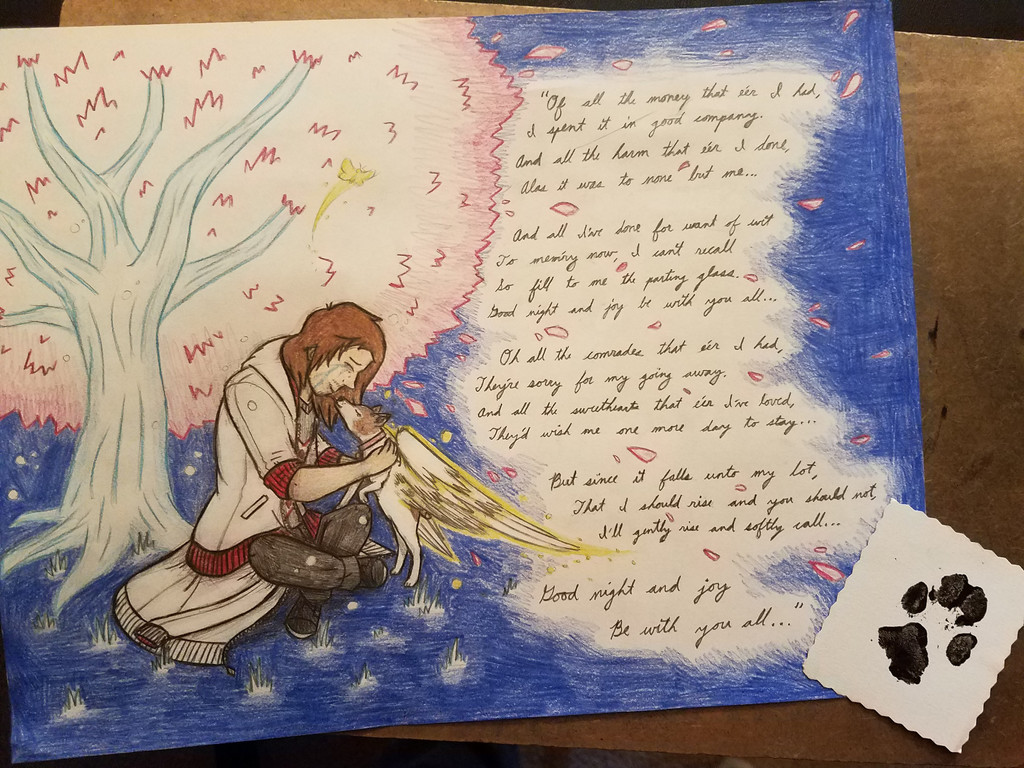 "Of all the money that e'er I had,
I spent it in good company.
And all the harm that e'er I done,
Alas it was to none but me...
And all I've done for want of wit
To mem'ry now, I can't recall
So fill to me the parting glass.
Good night and joy be with you all...
Oh all the comrades that e'er I had,
They're sorry for my going away.
And all the sweethearts that e'er I've loved,
They'd wish me one more day to stay...
But since it falls unto my lot,
That I should rise and you should not,
I'll gently rise and softly call...
Good night and joy
Be with you all..."